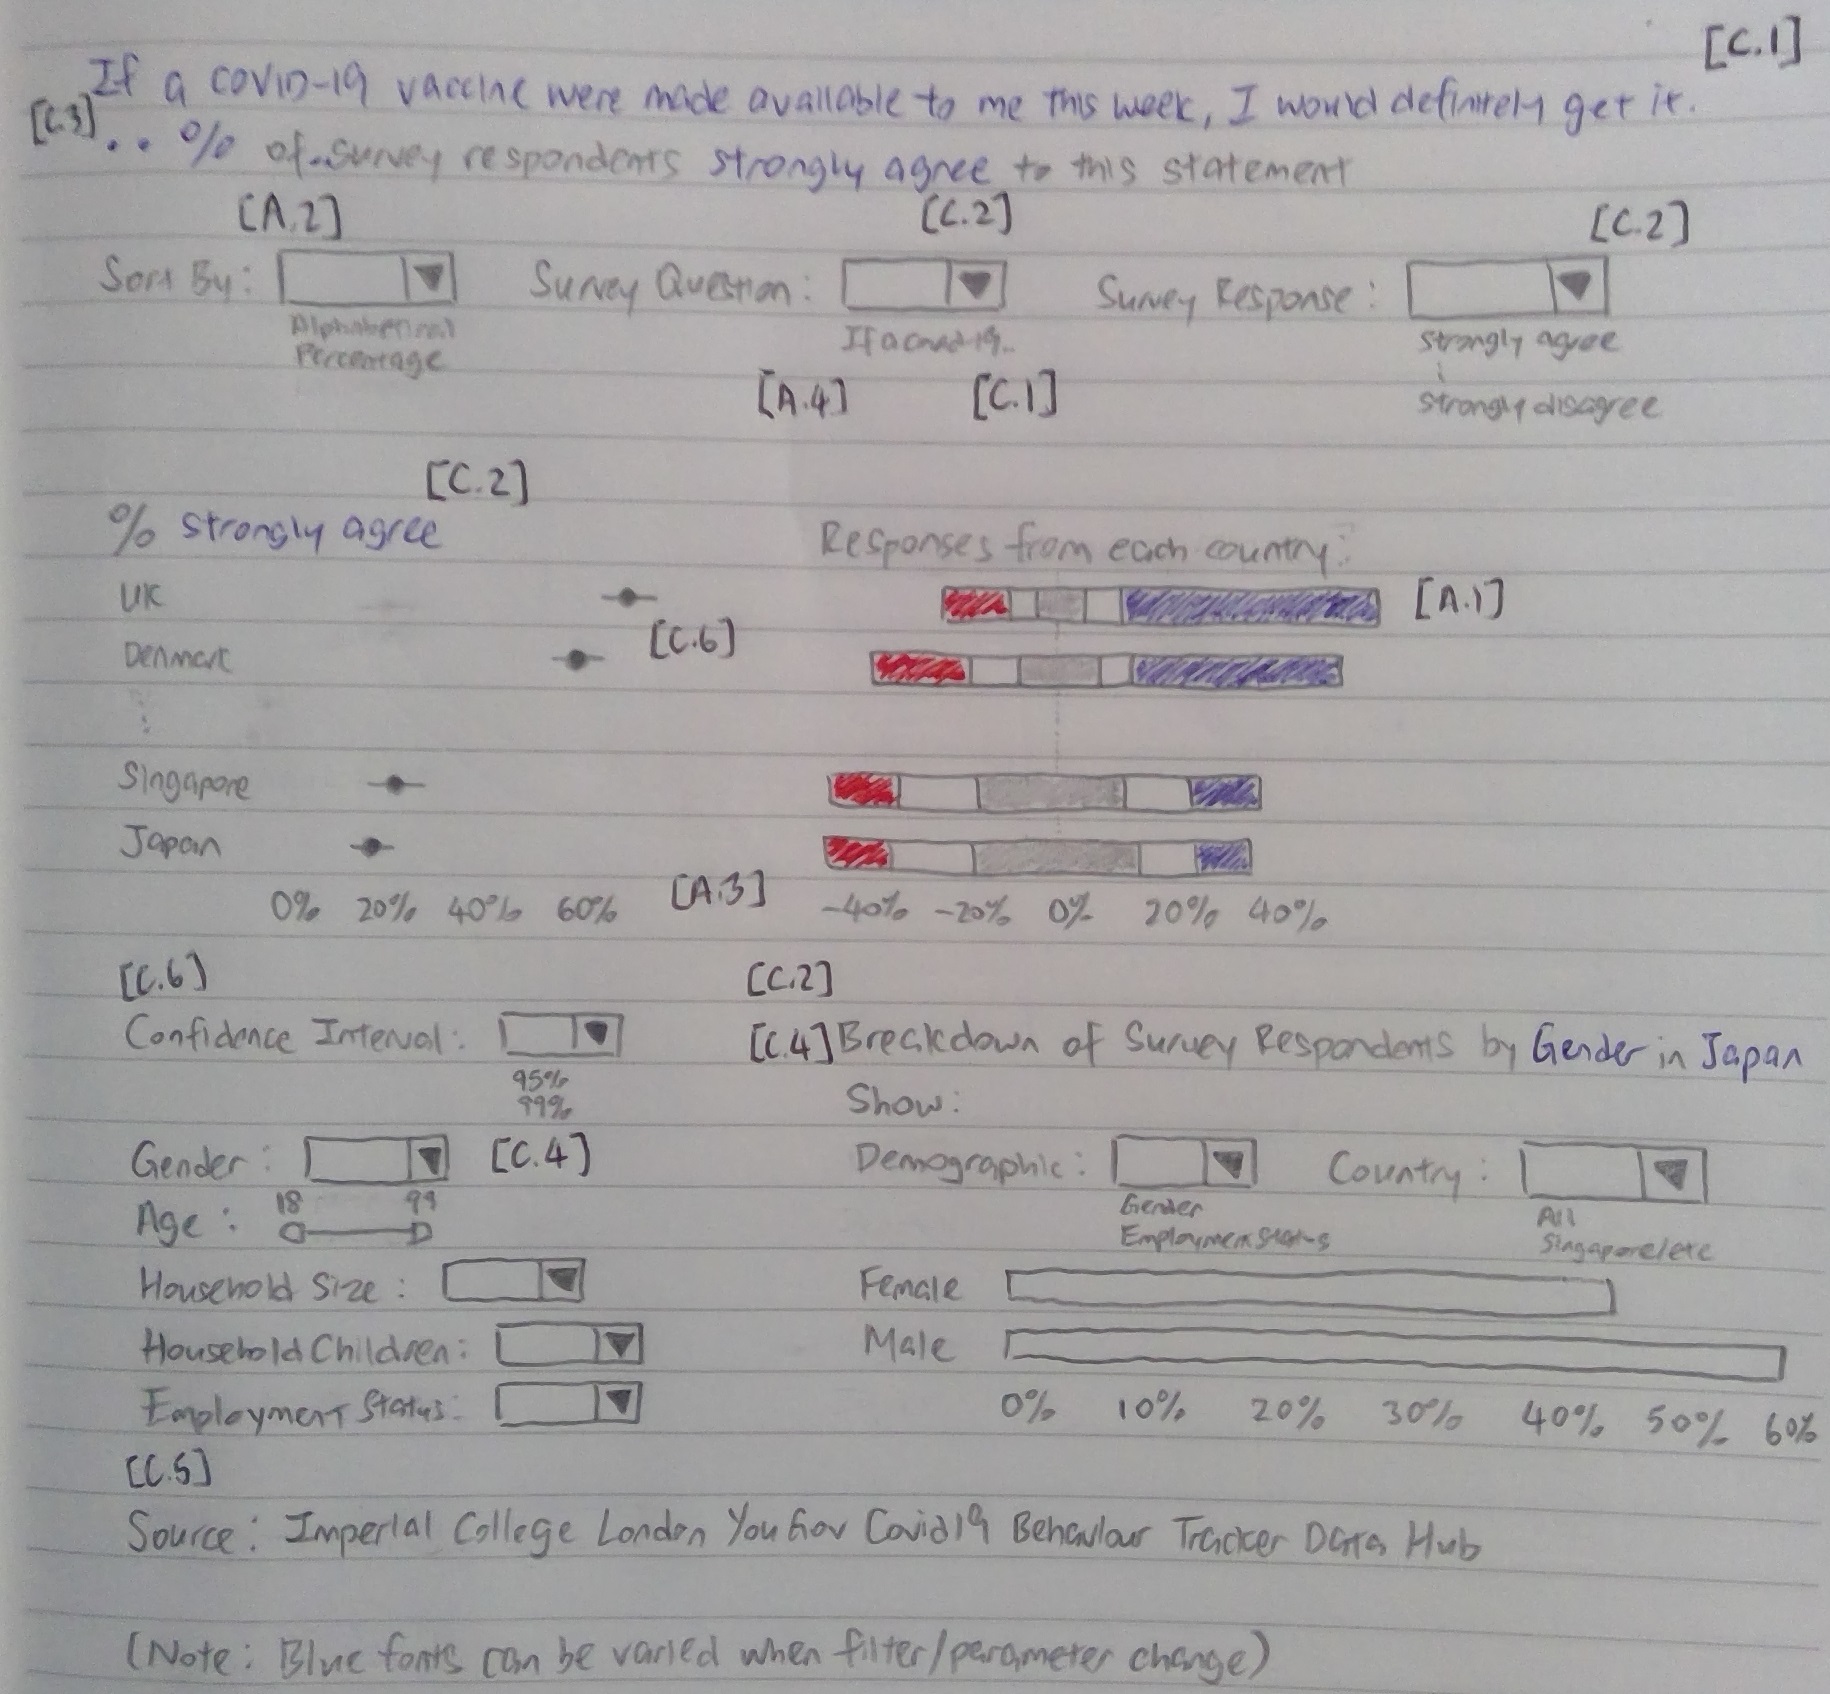 [C.1]
If a covid-19 vaccine were made available to me this week, I would definitely get it.
[C.3] .. % of survey respondents strongly agree to this statement
[A.2] [C.2] [C.2]
Sort By: Survey Question: Survey Response:
Alphabetical If a covid-19.. strongly agree
Percentage
[A.4] [C.1] strongly disagree
[C.2]
% strongly agree Responses from each country:
UK [A.1]
[C.6]
Denmark
Singapore
Japan
[A.3]
0% 20% 40% 60% -40% -20% 0% 20% 40%
[C.6] [C.2]
Confidence Interval: [C.4] Breakdown of Survey Respondents by Gender in Japan
95%
99% Show:
Gender: [C.4] Demographic: Country:
18 99 Gender All
Age: Employment Status Singapore/etc
Household Size: Female
Household Children: Male
Employment Status: 0% 10% 20% 30% 40% 50% 60%
[C.5]
Source: Imperial College London YouGov Covid19 Behaviour Tracker Data Hub
(Note: Blue fonts can be varied when filter/parameter change)